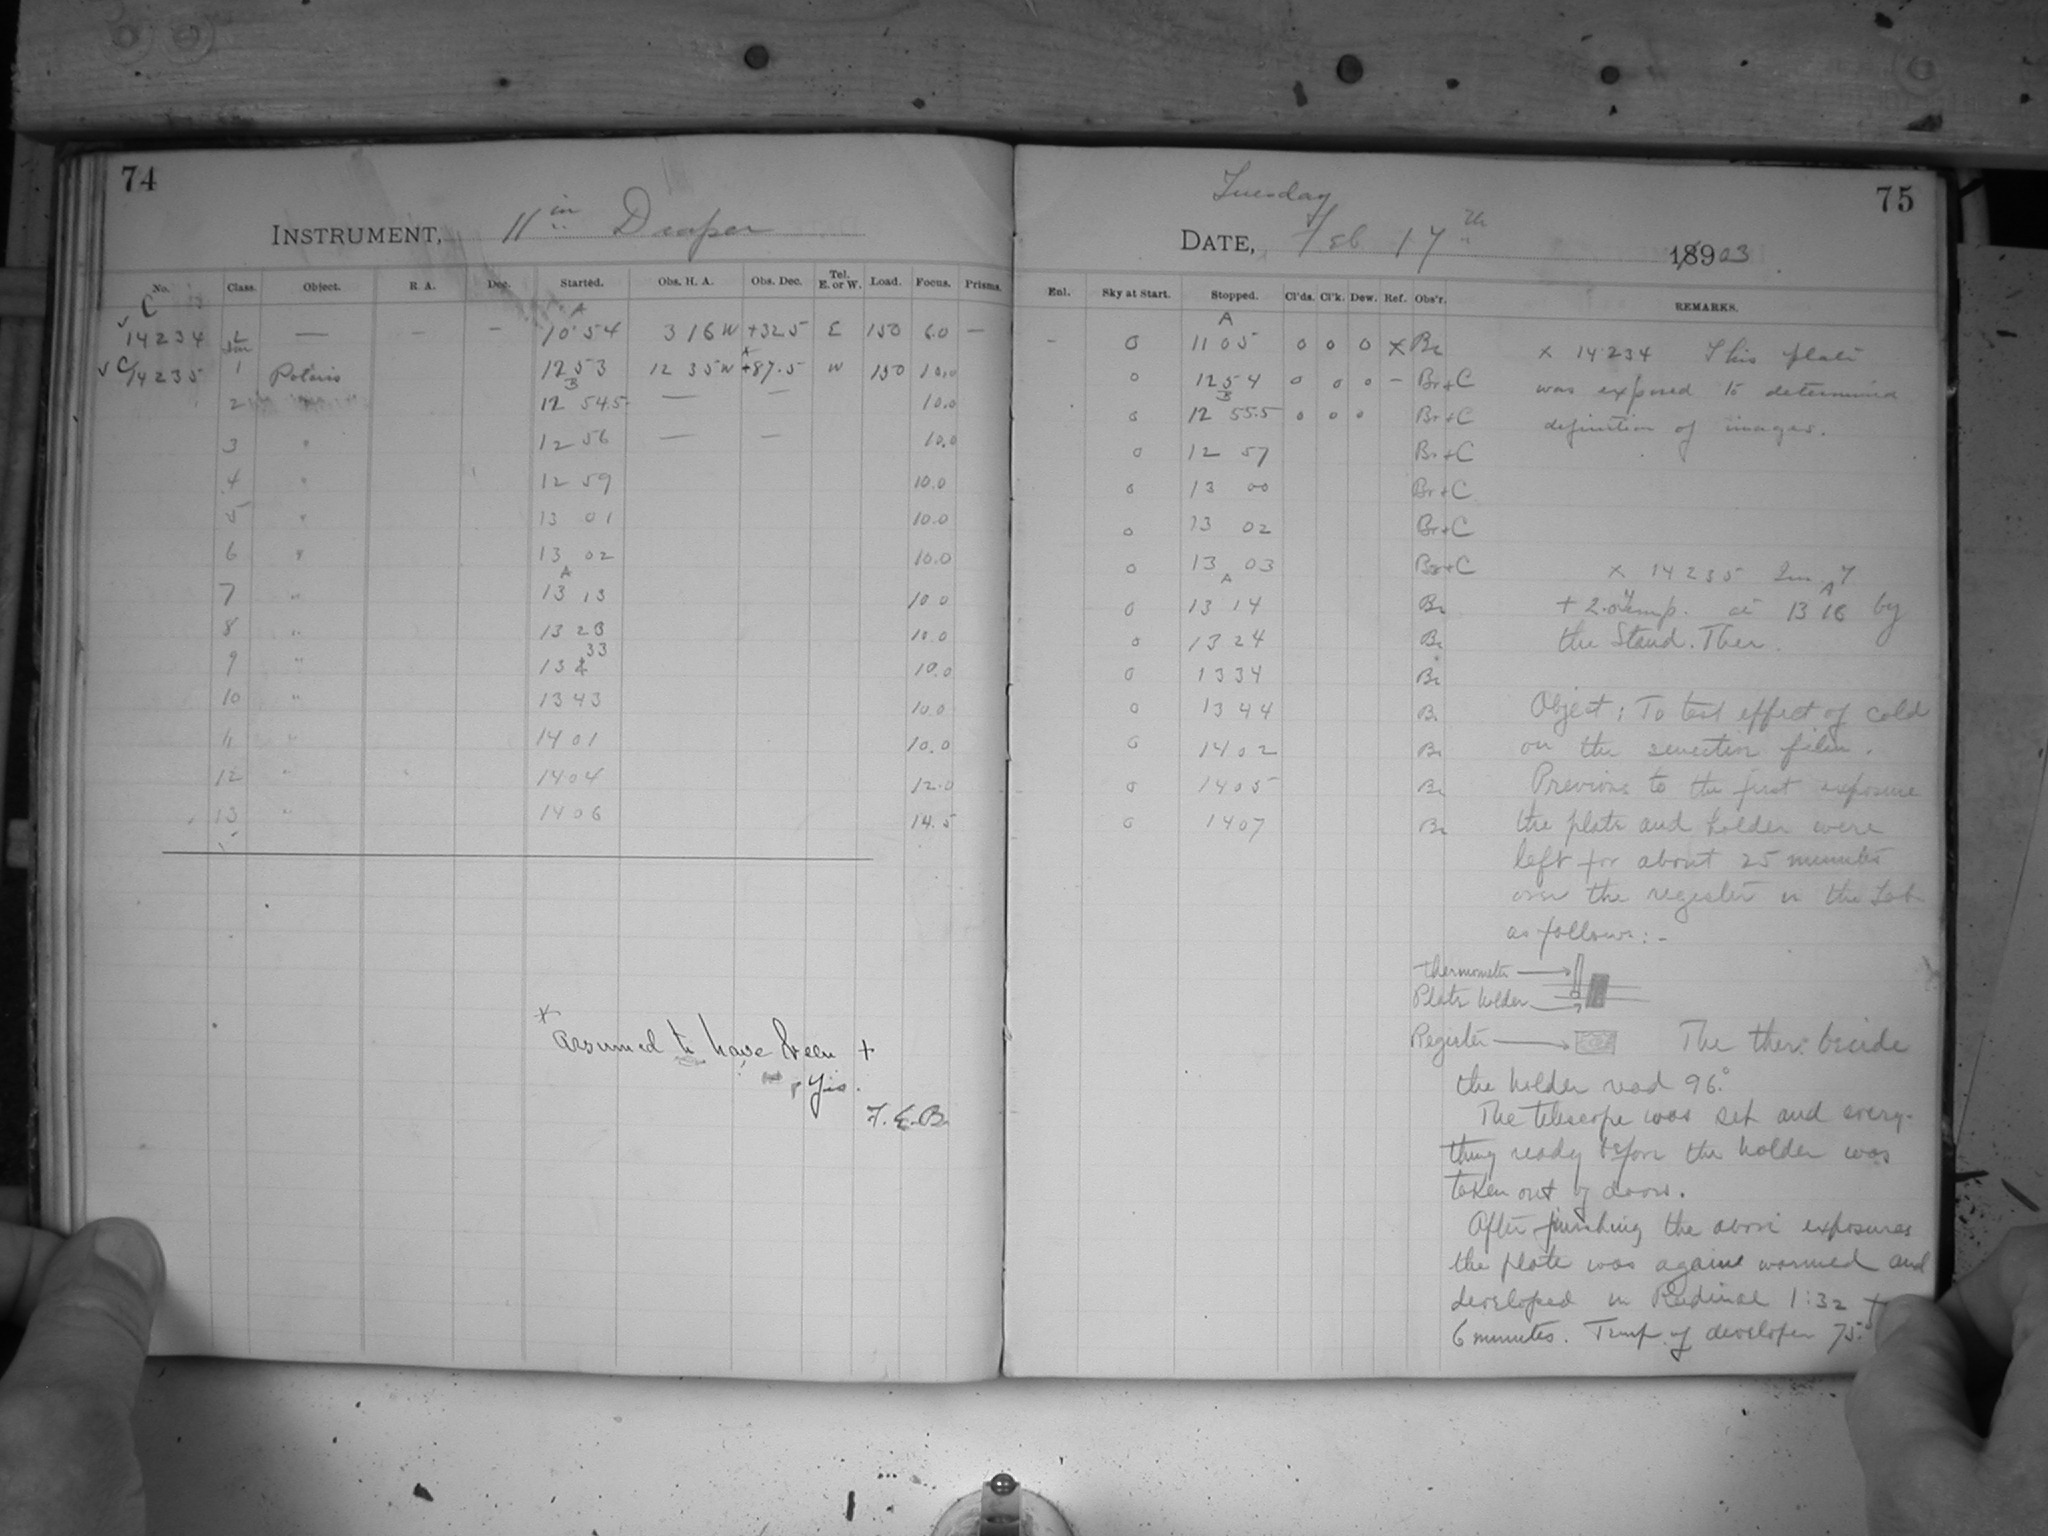 74
INSTRUMENT, 11 in Draper
No. Class. Object. R.A. Dec. Started. Obs. H. A. Obs. Dec. Tel. E. or W. Load. Focus. Prisms.
C A
14234 L — — — 10 54 3 16 W +32.5 E 150 6.0 —
C 14235 1 Polaris 12 53 12 35 W +87.5 W 150 10.0
B
2 " 12 54.5 — — 10.0
3 " 12 56 — — 10.0
4 " 12 59 10.0
5 " 13 01 10.0
6 " 13 02 10.0
A
7 " 13 13 10.0
8 " 13 23 10.0
9 " 13 33 10.0
10 " 13 43 10.0
11 " 14 01 10.0
12 " 14 04 12.0
13 " 14 06 14.5
x
assumed to have been +
Yes.
F. E. B.
75
Tuesday
DATE, Feb 17th 18903
Enl. Sky at Start. Stopped. Cl'ds. Cl'k. Dew. Ref. Obs'r. REMARKS.
A
- 0 11 05 0 0 0 x Br x 14234 This plate
0 12 54 0 0 0 — Br+C was exposed to determine
B
0 12 55.5 0 0 0 Br+C definition of images.
0 12 57 Br+C
0 13 00 Br+C
0 13 02 Br+C
0 13 03 Br+C x 14235
A
0 13 14 Br + 2.0 Temp. at 13 16 by
0 13 24 Br the Stand. Ther.
0 13 34 Br
0 13 44 Br Object: To test effect of cold
0 14 02 Br on the sensitive film.
0 14 05 Br Previous to the first exposure
0 14 07 Br the plate and holder were
left for about 25 minutes
over the register in the Lab
as follows:-
thermometer
Plate holder
Register The ther. beside
the holder read 96.°
The telescope was set and every-
thing ready before the holder was
taken out of doors.
After finishing the above exposures
the plate was again warmed and
developed in Rodinal 1:32
6 minutes. Temp. of developer 75.°